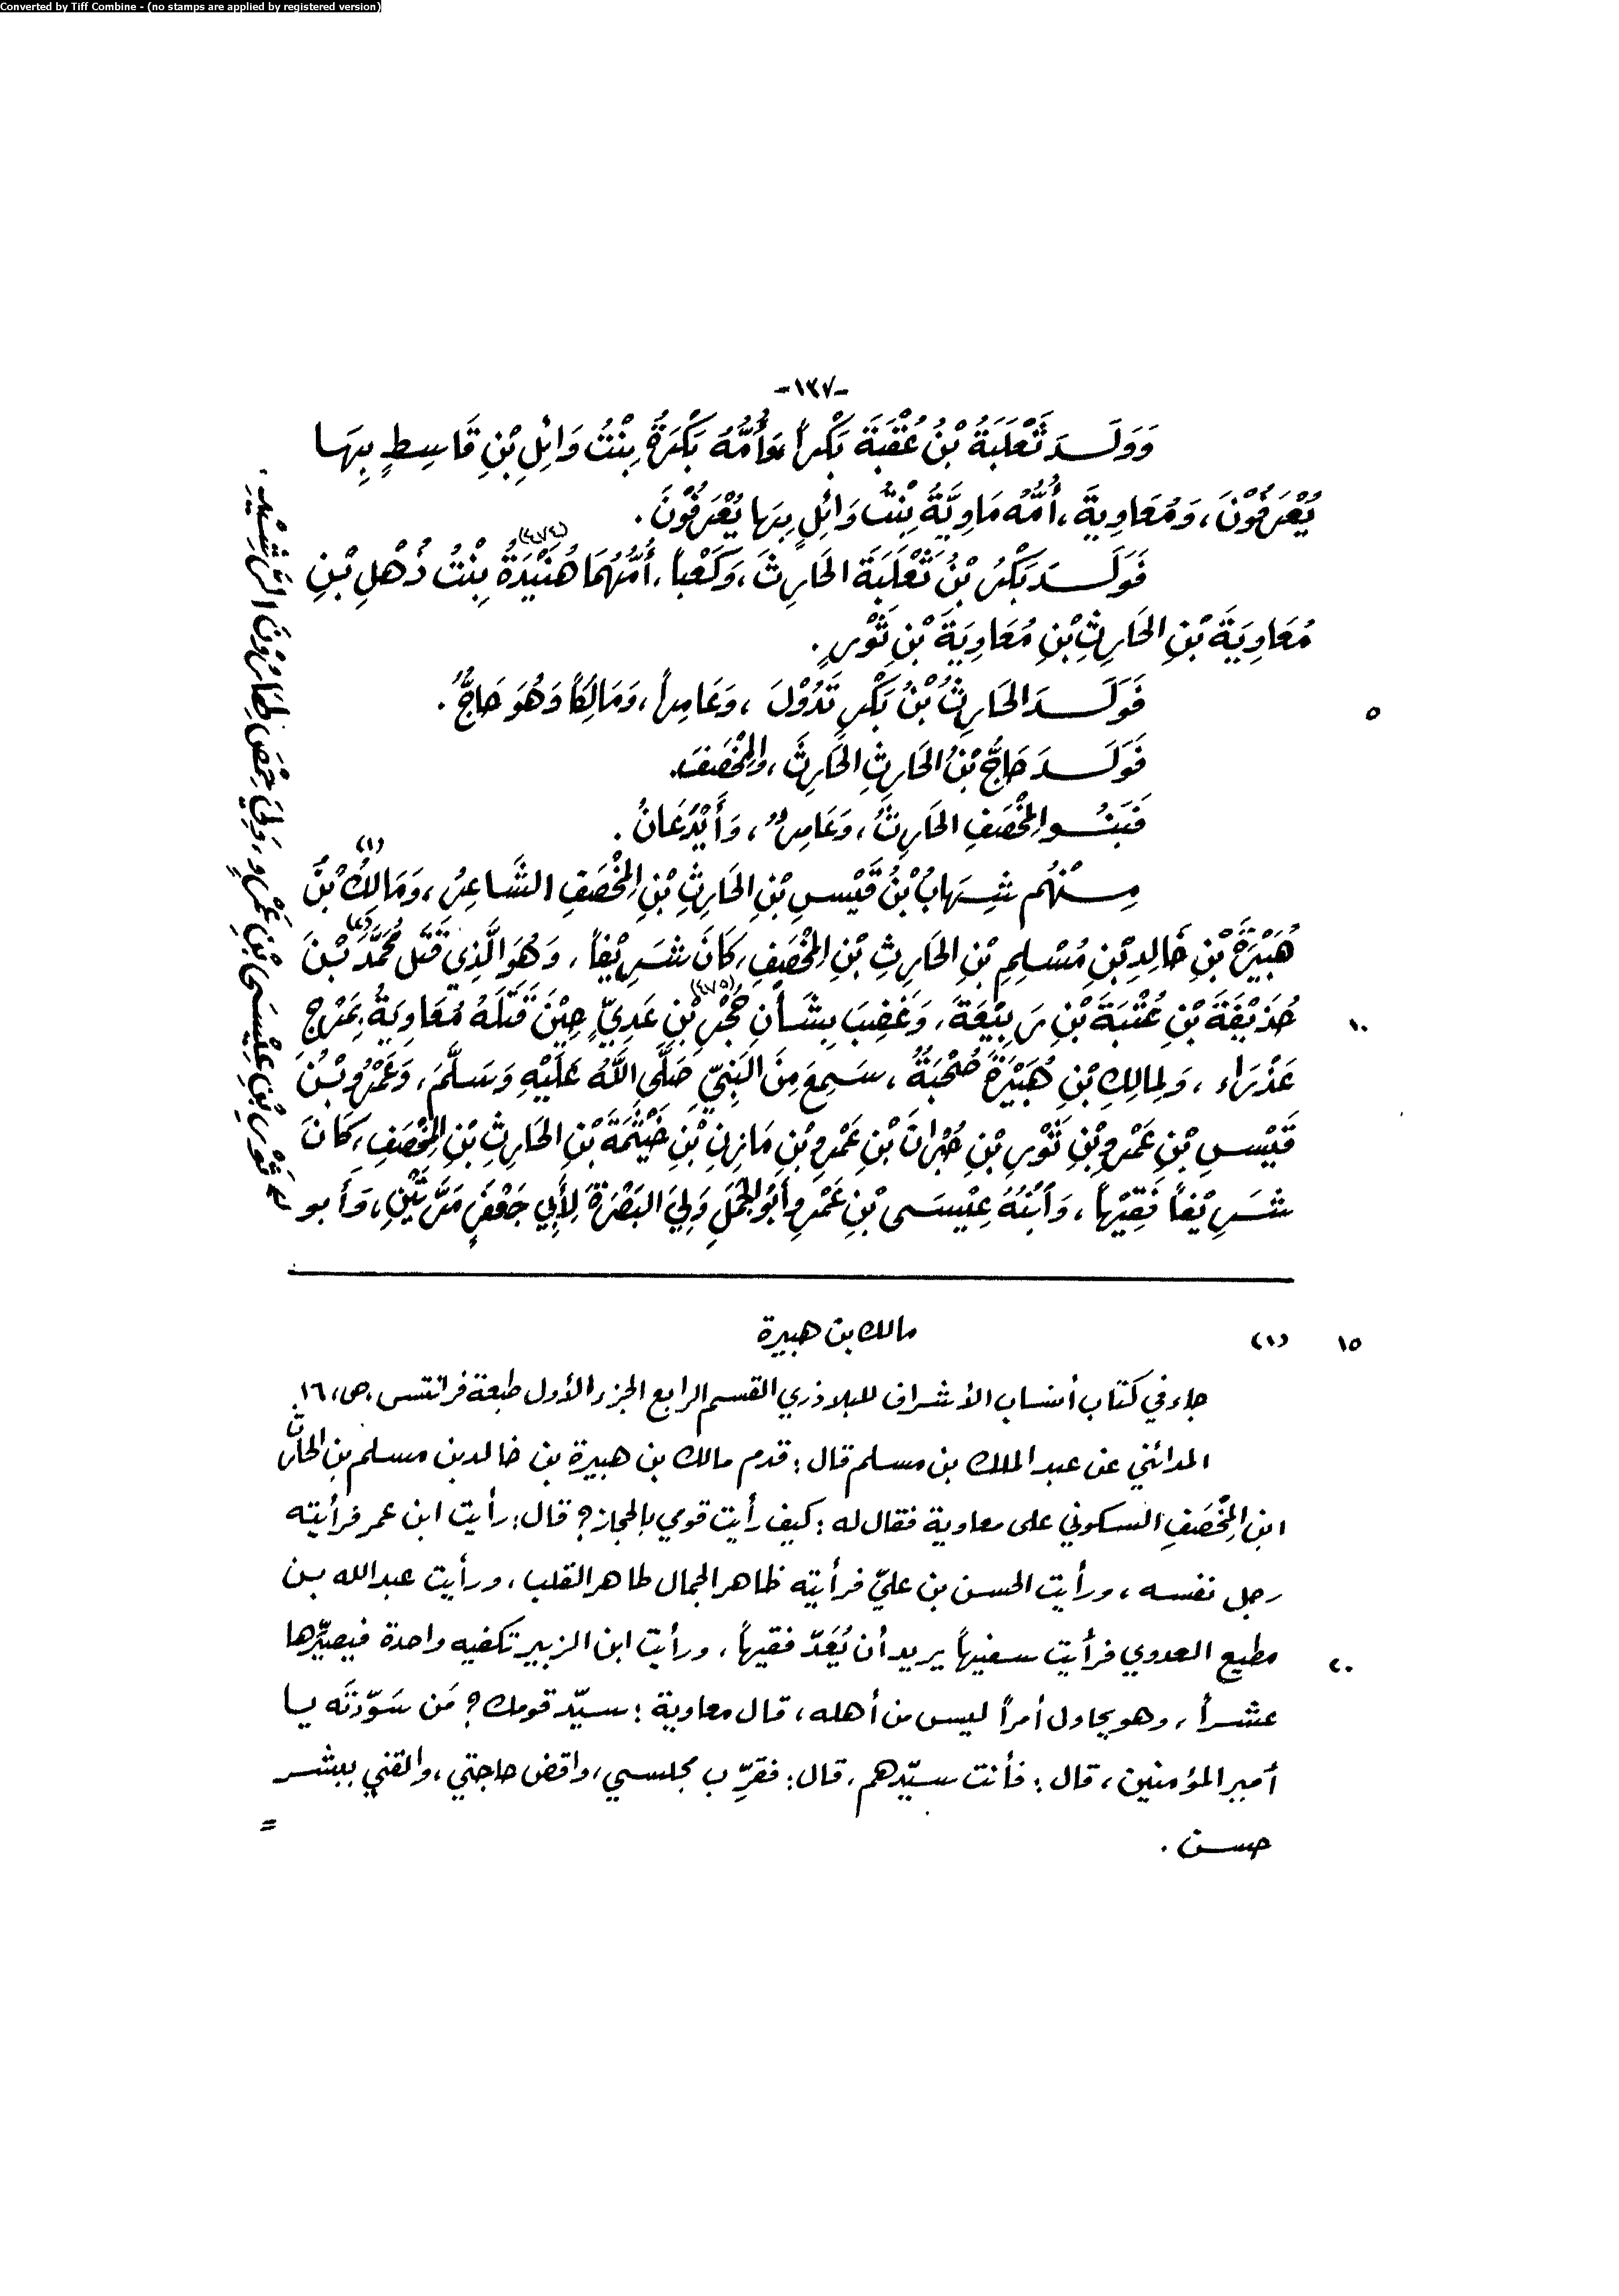 Converted by Tiff Combine - (no stamps are applied by registered version)
-١٣٧-
وَوَلَـدَ ثَعْلَبَةُ بْنُ عُقْبَةَ بَكْراً وَأُمُّهُ بَكْرَةُ بِنْتُ وَائِلِ بْنِ قَاسِطٍ بِهَا
يُعْرَفُوْنَ، وَمُعَاوِيَةَ، أُمُّهُ مَاوِيَّةُ بِنْتُ وَائِلٍ بِهَا يُعْرَفُوْنَ.
فَوَلَـدَ بَكْرُ بْنُ ثَعْلَبَةَ الحَارِثَ، وَكَعْباً، أُمُّهُمَا هُنَيْدَةُ (٤٧٤) بِنْتُ ذُهْلِ بْنِ
مُعَاوِيَةَ بْنِ الحَارِثِ بْنِ مُعَاوِيَةَ بْنِ ثَوْرٍ.
فَوَلَـدَ الحَارِثُ بْنُ بَكْرٍ تَدُوْلَ، وَعَامِراً، وَمَالِكاً وَهُوَ حَاجٌّ.
٥
فَوَلَـدَ حَاجُّ بْنُ الحَارِثِ الحَارِثَ، وَالمِخْصَفَ.
فَبَنُـو المِخْصَفِ الحَارِثُ، وَعَامِرٌ، وَأَيْدَعَانُ.
مِـنْهُم شِهَابُ بْنُ قَيْسِ بْنِ الحَارِثِ بْنِ المِخْصَفِ الشَّاعِرُ، وَمَالِكُ (١) بْنُ
هُبَيْرَةَ بْنِ خَالِدِ بْنِ مُسْلِمِ بْنِ الحَارِثِ بْنِ المِخْصَفِ، كَانَ شَرِيْفاً، وَهُوَ الَّذِي قَتَلَ مُحَمَّدَ (٢) بْنَ
حُذَيْفَةَ بْنِ عُتْبَةَ بْنِ رَبِيْعَةَ، وَغَضِبَ بِشَأْنِ حُجْرِ (٤٧٥) بْنِ عَدِيٍّ حِيْنَ قَتَلَهُ مُعَاوِيَةُ بِمَرْجِ
١٠
عَذْرَاء، وَلِمالِكِ بْنِ هُبَيْرَةَ صُحْبَةٌ، سَمِعَ مِنَ النَّبِيِّ صَلَّى اللَّهُ عَلَيْهِ وَسَلَّمَ، وَعَمْرُو بْنُ
قَيْسِ بْنِ عَمْرِو بْنِ ثَوْرِ بْنِ خَيْثَمَةَ بْنِ الحَارِثِ بْنِ المِخْصَفِ، كَانَ
شَرِيْفاً فَقِيْهاً، وَابْنُهُ عِيْسَى بْنِ عَمْرٍو أَبُو الجَمَلِ وَلِيَ البَصْرَةَ لِأَبِي جَعْفَرٍ مَرَّتَيْنِ، وَأَبو
ثَوْرِ بْنِ عِيْسَى بْنِ عَمْرٍو، وَلِيَ حِمْصَ لِهَارُوْنَ الرَّشِيْدِ.
١٥
(١) مالك بن هبيرة
جاء في كتاب أنساب الأشراف للبلاذري القسم الرابع الجزء الأول طبعة فرانتس، ص، ١٦.
المدائني عن عبد الملك بن مسلم قال: قدم مالك بن هبيرة بن خالد بن مسلم بن الحارث
ابن المِخْصَفِ السكوني على معاوية فقال له: كيف رأيت قومي بالحجاز؟ قال: رأيت ابن عمر فرأيته
رجل نفسه، ورأيت الحسن بن عليّ فرأيته ظاهر الجمال طاهر القلب، ورأيت عبد الله بـن
مطيع العدوي فرأيت سفيهاً يريد أن يُعَدّ فقيهاً، ورأيت ابن الزبير تكفيه واحدة فيصيّرها
٢٠
عشـراً، وهو يحاول أمراً ليس من أهله، قال معاوية: سيّد قومك؟ مَن سَوّدتَه يـا
أمير المؤمنين، قال: فأنت سيّدهم، قال: فقرِّب مجلسي، واقض حاجتي، والقني ببشـر
حسـن.
=